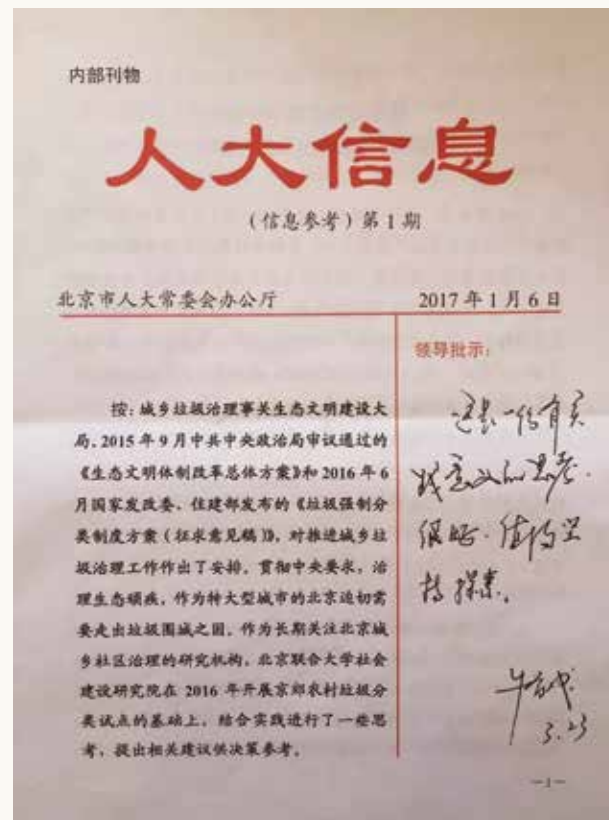 内部刊物
人大信息
（信息参考）第1期
北京市人大常委会办公厅
2017年1月6日
按：城乡垃圾治理事关生态文明建设大
局。2015年9月中共中央政治局审议通过的
《生态文明体制改革总体方案》和2016年6
月国家发改委、住建部发布的《垃圾强制分
类制度方案（征求意见稿）》，对推进城乡垃
圾治理工作作出了安排。贯彻中央要求，治
理生态顽疾，作为特大型城市的北京迫切需
要走出垃圾围城之困。作为长期关注北京城
乡社区治理的研究机构，北京联合大学社会
建设研究院在2016年开展京郊农村垃圾分
类试点的基础上，结合实践进行了一些思
考，提出相关建议供决策参考。
领导批示：
这是一份有实
践意义的思考.
很好.值得坚
持探索。
牛有成
3.23
—1—